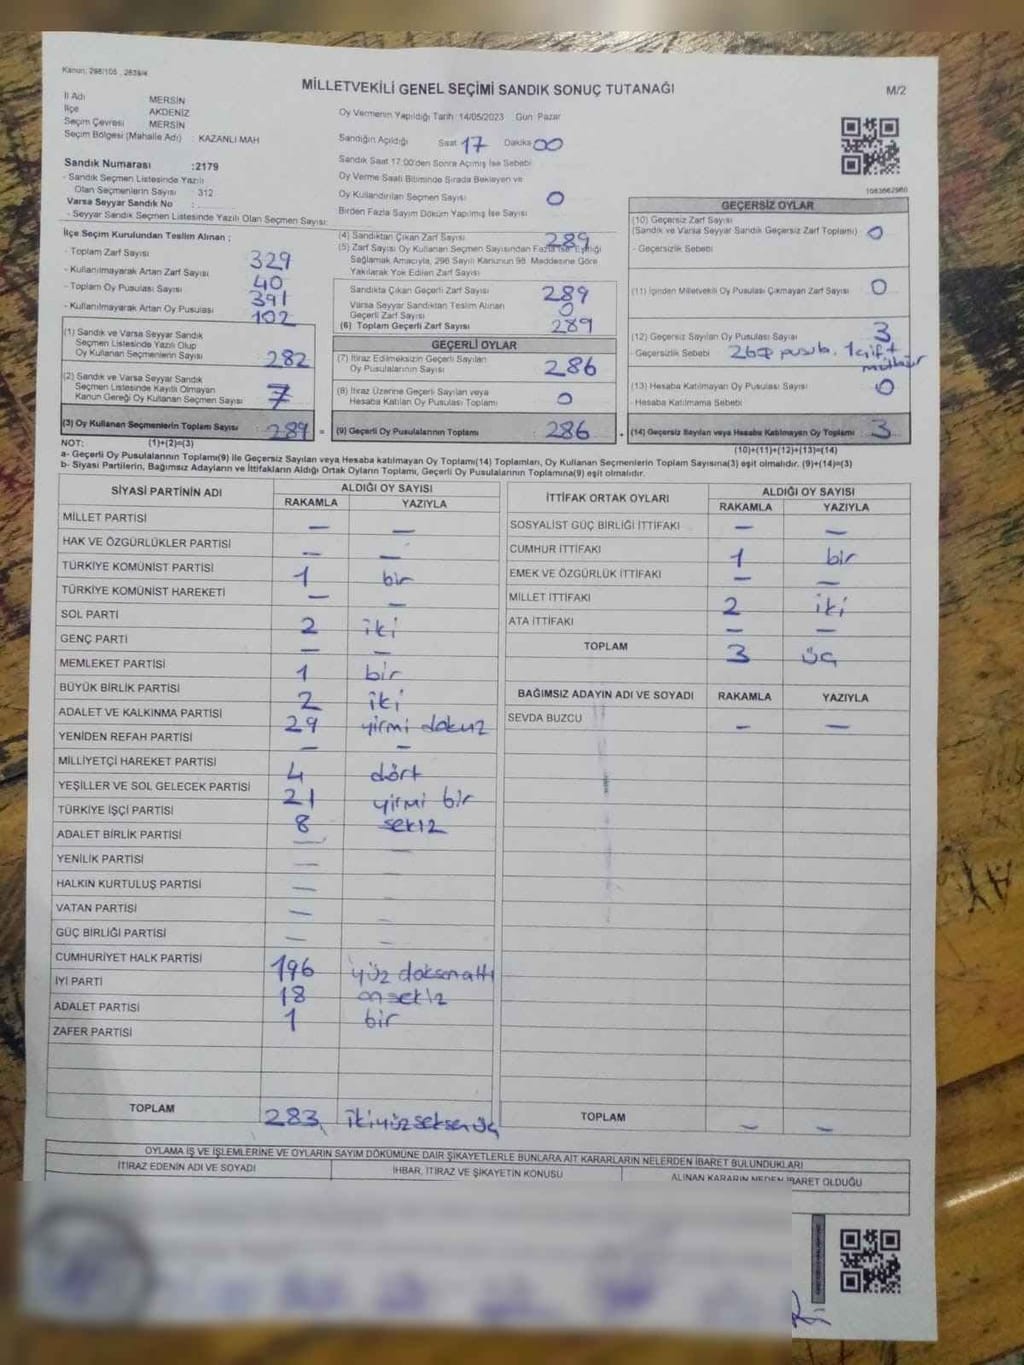 Kanun: 298/105 , 2839/4
MİLLETVEKİLİ GENEL SEÇİMİ SANDIK SONUÇ TUTANAĞI
M/2
İl Adı MERSİN
İlçe AKDENİZ
Seçim Çevresi MERSİN
Seçim Bölgesi (Mahalle Adı) : KAZANLI MAH
Sandık Numarası :2179
- Sandık Seçmen Listesinde Yazılı
Olan Seçmenlerin Sayısı 312
Varsa Seyyar Sandık No :
- Seyyar Sandık Seçmen Listesinde Yazılı Olan Seçmen Sayısı:
Oy Vermenin Yapıldığı Tarih :14/05/2023 Gün: Pazar
Sandığın Açıldığı Saat 17 Dakika 00
Sandık Saat 17:00'den Sonra Açılmış İse Sebebi
Oy Verme Saati Bitiminde Sırada Bekleyen ve
Oy Kullandırılan Seçmen Sayısı 0
Birden Fazla Sayım Döküm Yapılmış İse Sayısı
1083662960
İlçe Seçim Kurulundan Teslim Alınan :
- Toplam Zarf Sayısı 329
- Kullanılmayarak Artan Zarf Sayısı 40
- Toplam Oy Pusulası Sayısı 391
- Kullanılmayarak Artan Oy Pusulası 102
(1) Sandık ve Varsa Seyyar Sandık
Seçmen Listesinde Yazılı Olup
Oy Kullanan Seçmenlerin Sayısı 282
(2) Sandık ve Varsa Seyyar Sandık
Seçmen Listesinde Kayıtlı Olmayan
Kanun Gereği Oy Kullanan Seçmen Sayısı 7
(3) Oy Kullanan Seçmenlerin Toplam Sayısı 289 =
(4) Sandıktan Çıkan Zarf Sayısı 289
(5) Zarf Sayısı Oy Kullanan Seçmen Sayısından Fazla İse Eşitliği
Sağlamak Amacıyla, 298 Sayılı Kanunun 98. Maddesine Göre
Yakılarak Yok Edilen Zarf Sayısı
Sandıkta Çıkan Geçerli Zarf Sayısı 289
Varsa Seyyar Sandıktan Teslim Alınan
Geçerli Zarf Sayısı 0
(6) Toplam Geçerli Zarf Sayısı 289
GEÇERLİ OYLAR
(7) İtiraz Edilmeksizin Geçerli Sayılan
Oy Pusulalarının Sayısı 286
(8) İtiraz Üzerine Geçerli Sayılan veya
Hesaba Katılan Oy Pusulası Toplamı 0
(9) Geçerli Oy Pusulalarının Toplamı 286 +
GEÇERSİZ OYLAR
(10) Geçersiz Zarf Sayısı
(Sandık ve Varsa Seyyar Sandık Geçersiz Zarf Toplamı) 0
- Geçersizlik Sebebi
(11) İçinden Milletvekili Oy Pusulası Çıkmayan Zarf Sayısı 0
(12) Geçersiz Sayılan Oy Pusulası Sayısı 3
- Geçersizlik Sebebi pusub. 1 çift
mühür
(13) Hesaba Katılmayan Oy Pusulası Sayısı 0
- Hesaba Katılmama Sebebi
(14) Geçersiz Sayılan veya Hesaba Katılmayan Oy Toplamı 3
NOT: (1)+(2)=(3)
(10)+(11)+(12)+(13)=(14)
a- Geçerli Oy Pusulalarının Toplamı(9) ile Geçersiz Sayılan veya Hesaba Katılmayan Oy Toplamı(14) Toplamları, Oy Kullanan Seçmenlerin Toplam Sayısına(3) eşit olmalıdır. (9)+(14)=(3)
b- Siyasi Partilerin, Bağımsız Adayların ve İttifakların Aldığı Ortak Oyların Toplamı, Geçerli Oy Pusulalarının Toplamına(9) eşit olmalıdır.
SİYASİ PARTİNİN ADI ALDIĞI OY SAYISI
RAKAMLA YAZIYLA
MİLLET PARTİSİ — —
HAK VE ÖZGÜRLÜKLER PARTİSİ — —
TÜRKİYE KOMÜNİST PARTİSİ 1 bir
TÜRKİYE KOMÜNİST HAREKETİ — —
SOL PARTİ 2 iki
GENÇ PARTİ — —
MEMLEKET PARTİSİ 1 bir
BÜYÜK BİRLİK PARTİSİ 2 iki
ADALET VE KALKINMA PARTİSİ 29 yirmi dokuz
YENİDEN REFAH PARTİSİ — —
MİLLİYETÇİ HAREKET PARTİSİ 4 dört
YEŞİLLER VE SOL GELECEK PARTİSİ 21 yirmi bir
TÜRKİYE İŞÇİ PARTİSİ 8 sekiz
ADALET BİRLİK PARTİSİ — —
YENİLİK PARTİSİ —
HALKIN KURTULUŞ PARTİSİ —
VATAN PARTİSİ — —
GÜÇ BİRLİĞİ PARTİSİ — —
CUMHURİYET HALK PARTİSİ 196 yüz doksanaltı
İYİ PARTİ 18 onsekiz
ADALET PARTİSİ 1 bir
ZAFER PARTİSİ
TOPLAM 283 ikiyüzseksenüç
İTTİFAK ORTAK OYLARI ALDIĞI OY SAYISI
RAKAMLA YAZIYLA
SOSYALİST GÜÇ BİRLİĞİ İTTİFAKI — —
CUMHUR İTTİFAKI 1 bir
EMEK VE ÖZGÜRLÜK İTTİFAKI — —
MİLLET İTTİFAKI 2 iki
ATA İTTİFAKI — —
TOPLAM 3 üç
BAĞIMSIZ ADAYIN ADI VE SOYADI RAKAMLA YAZIYLA
SEVDA BUZCU — —
TOPLAM — —
OYLAMA İŞ VE İŞLEMLERİNE VE OYLARIN SAYIM DÖKÜMÜNE DAİR ŞİKAYETLERLE BUNLARA AİT KARARLARIN NELERDEN İBARET BULUNDUKLARI
İTİRAZ EDENİN ADI VE SOYADI İHBAR, İTİRAZ VE ŞİKAYETİN KONUSU ALINAN KARARIN NEDEN İBARET OLDUĞU